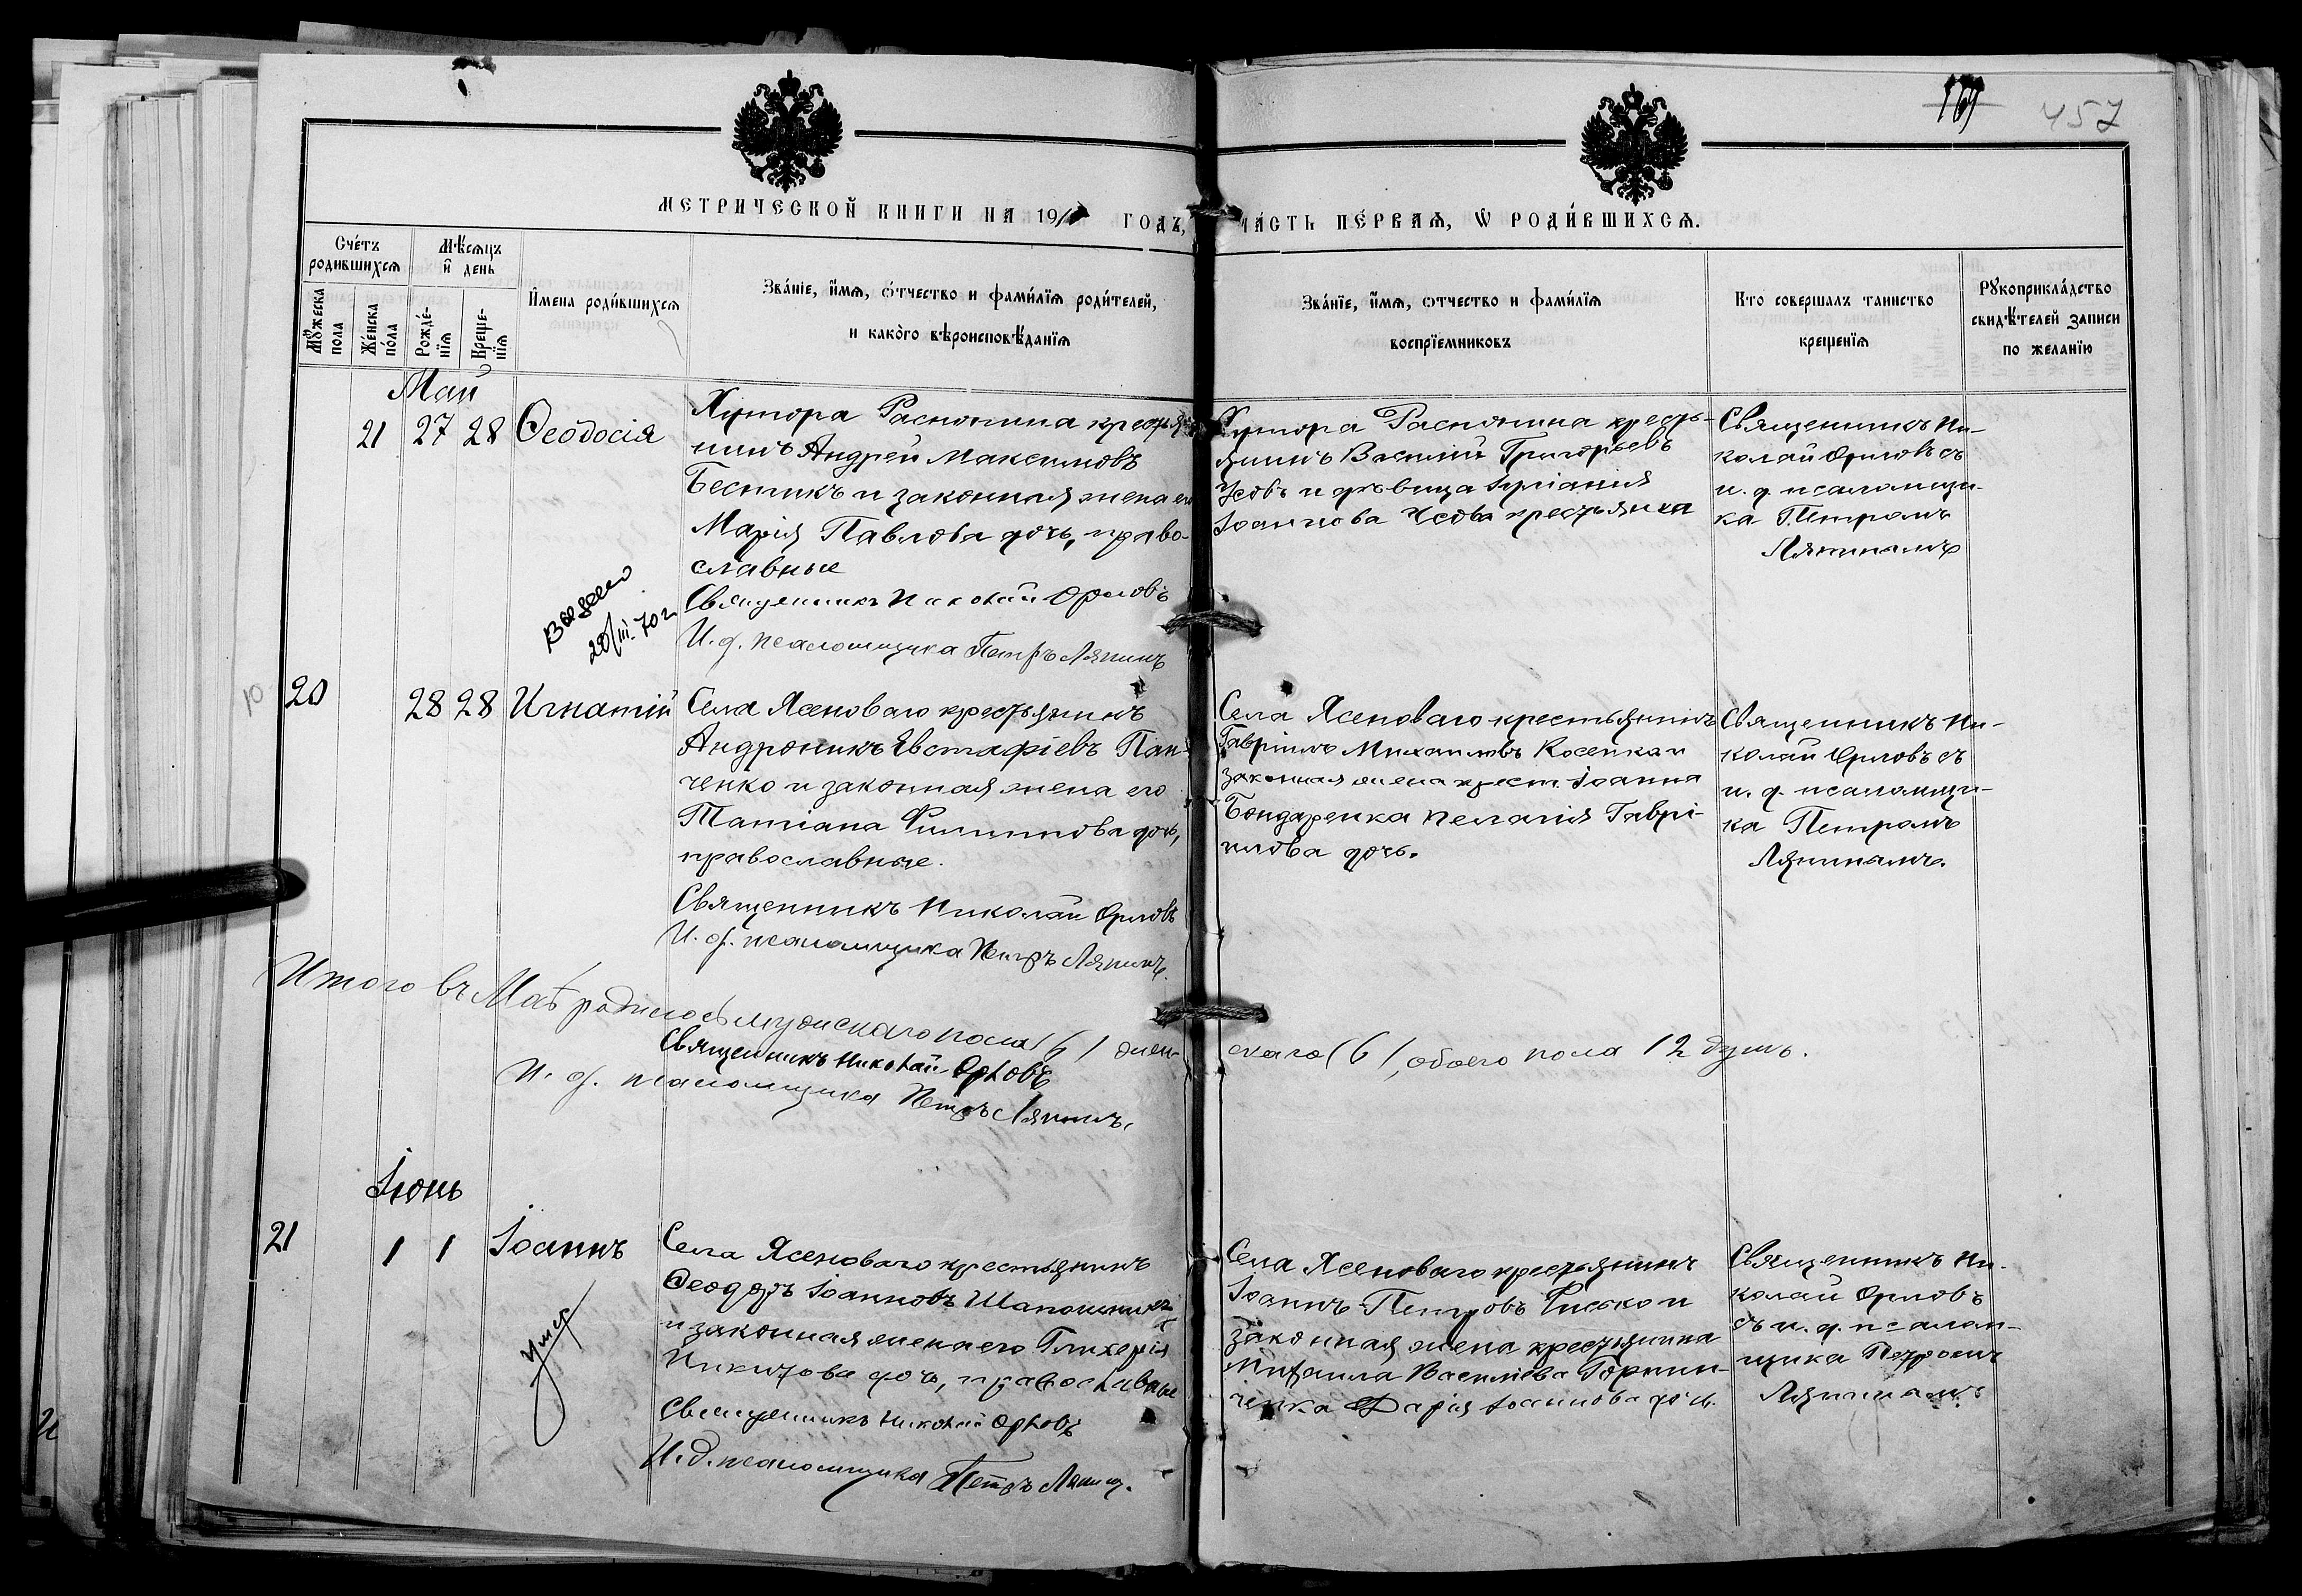 457
МЕТРИЧЕСКОЙ КНИГИ НА 19 ГОДЪ,
ЧА́СТЬ ПЕ́РВАѦ, Ѡ РОДИ́ВШИХСѦ.
Счéтъ родившихсѧ
Мѣ́сѧцъ и҆ день
Мꙋ́жеска пола
Же́нска по́ла
Рожде́нїѧ
Креще́нїѧ
И҆мена роди́вшихсѧ
Зва́нїе, и҆́мѧ, ѻ҆́тчество и фами́лїѧ роди́телей,
и како́го вѣроисповѣ́данїѧ
Зва́нїе, и҆́мѧ, ѻтчество и фами́лїѧ
воспрїемниковъ
Кто совершалъ таинство
крещенїѧ
Рꙋкоприкла́дство
свидѣ́телей записи
по желанїю
Май
21 27 28 Ѳеодосія
Хутора Распопина крестья-
нинъ Андрей Максимовъ
и законная жена его
Марія Павлова дочь, право-
славные
Священникъ Николай Орловъ
И. д. псаломщика Петръ Ляпинъ
Хутора Распопина кресть-
янинъ Василій Григорьевъ
Усовъ и дѣвица Іуліанія
Іоаннова Усова крестьянка
Священникъ Ни-
колай Орловъ съ
и. д. псаломщи-
ка Петромъ
Ляпинымъ
20/III-70 г
10
20 28 28 Игнатій
Села Ясеноваго крестьянинъ
Андроникъ Евстафіевъ Пан-
ченко и законная жена его
Татіана Филиппова дочь,
православные.
Священникъ Николай Орловъ
И. д. псаломщика Петръ Ляпинъ.
Села Ясеноваго крестьянинъ
Гавріилъ Михаиловъ Косенко и
законная жена крест. Іоанна
Бондаренка Пелагія Гаврі-
илова дочь.
Священникъ Ни-
колай Орловъ съ
и. д. псаломщи-
ка Петромъ
Ляпинымъ.
Итого въ Маѣ родилось мужескаго пола (6) жен-
скаго (6), обоего пола 12 душъ.
Священникъ Николай Орловъ
И. д. псаломщика Петръ Ляпинъ.
Іюнь
21 1 1 Іоаннъ
умер
Села Ясеноваго крестьянинъ
Ѳеодоръ Іоанновъ
и законная жена его Гликерія
Никитова дочь, православные
Священникъ Николай Орловъ
И. д. псаломщика Петръ Ляпинъ.
Села Ясеноваго крестьянинъ
Іоаннъ Петровъ и
законная жена крестьянина
Михаила Василіева Горпин-
ченка Дарія Іоаннова дочь.
Священникъ Ни-
колай Орловъ
съ и. д. псалом-
щика Петромъ
Ляпинымъ